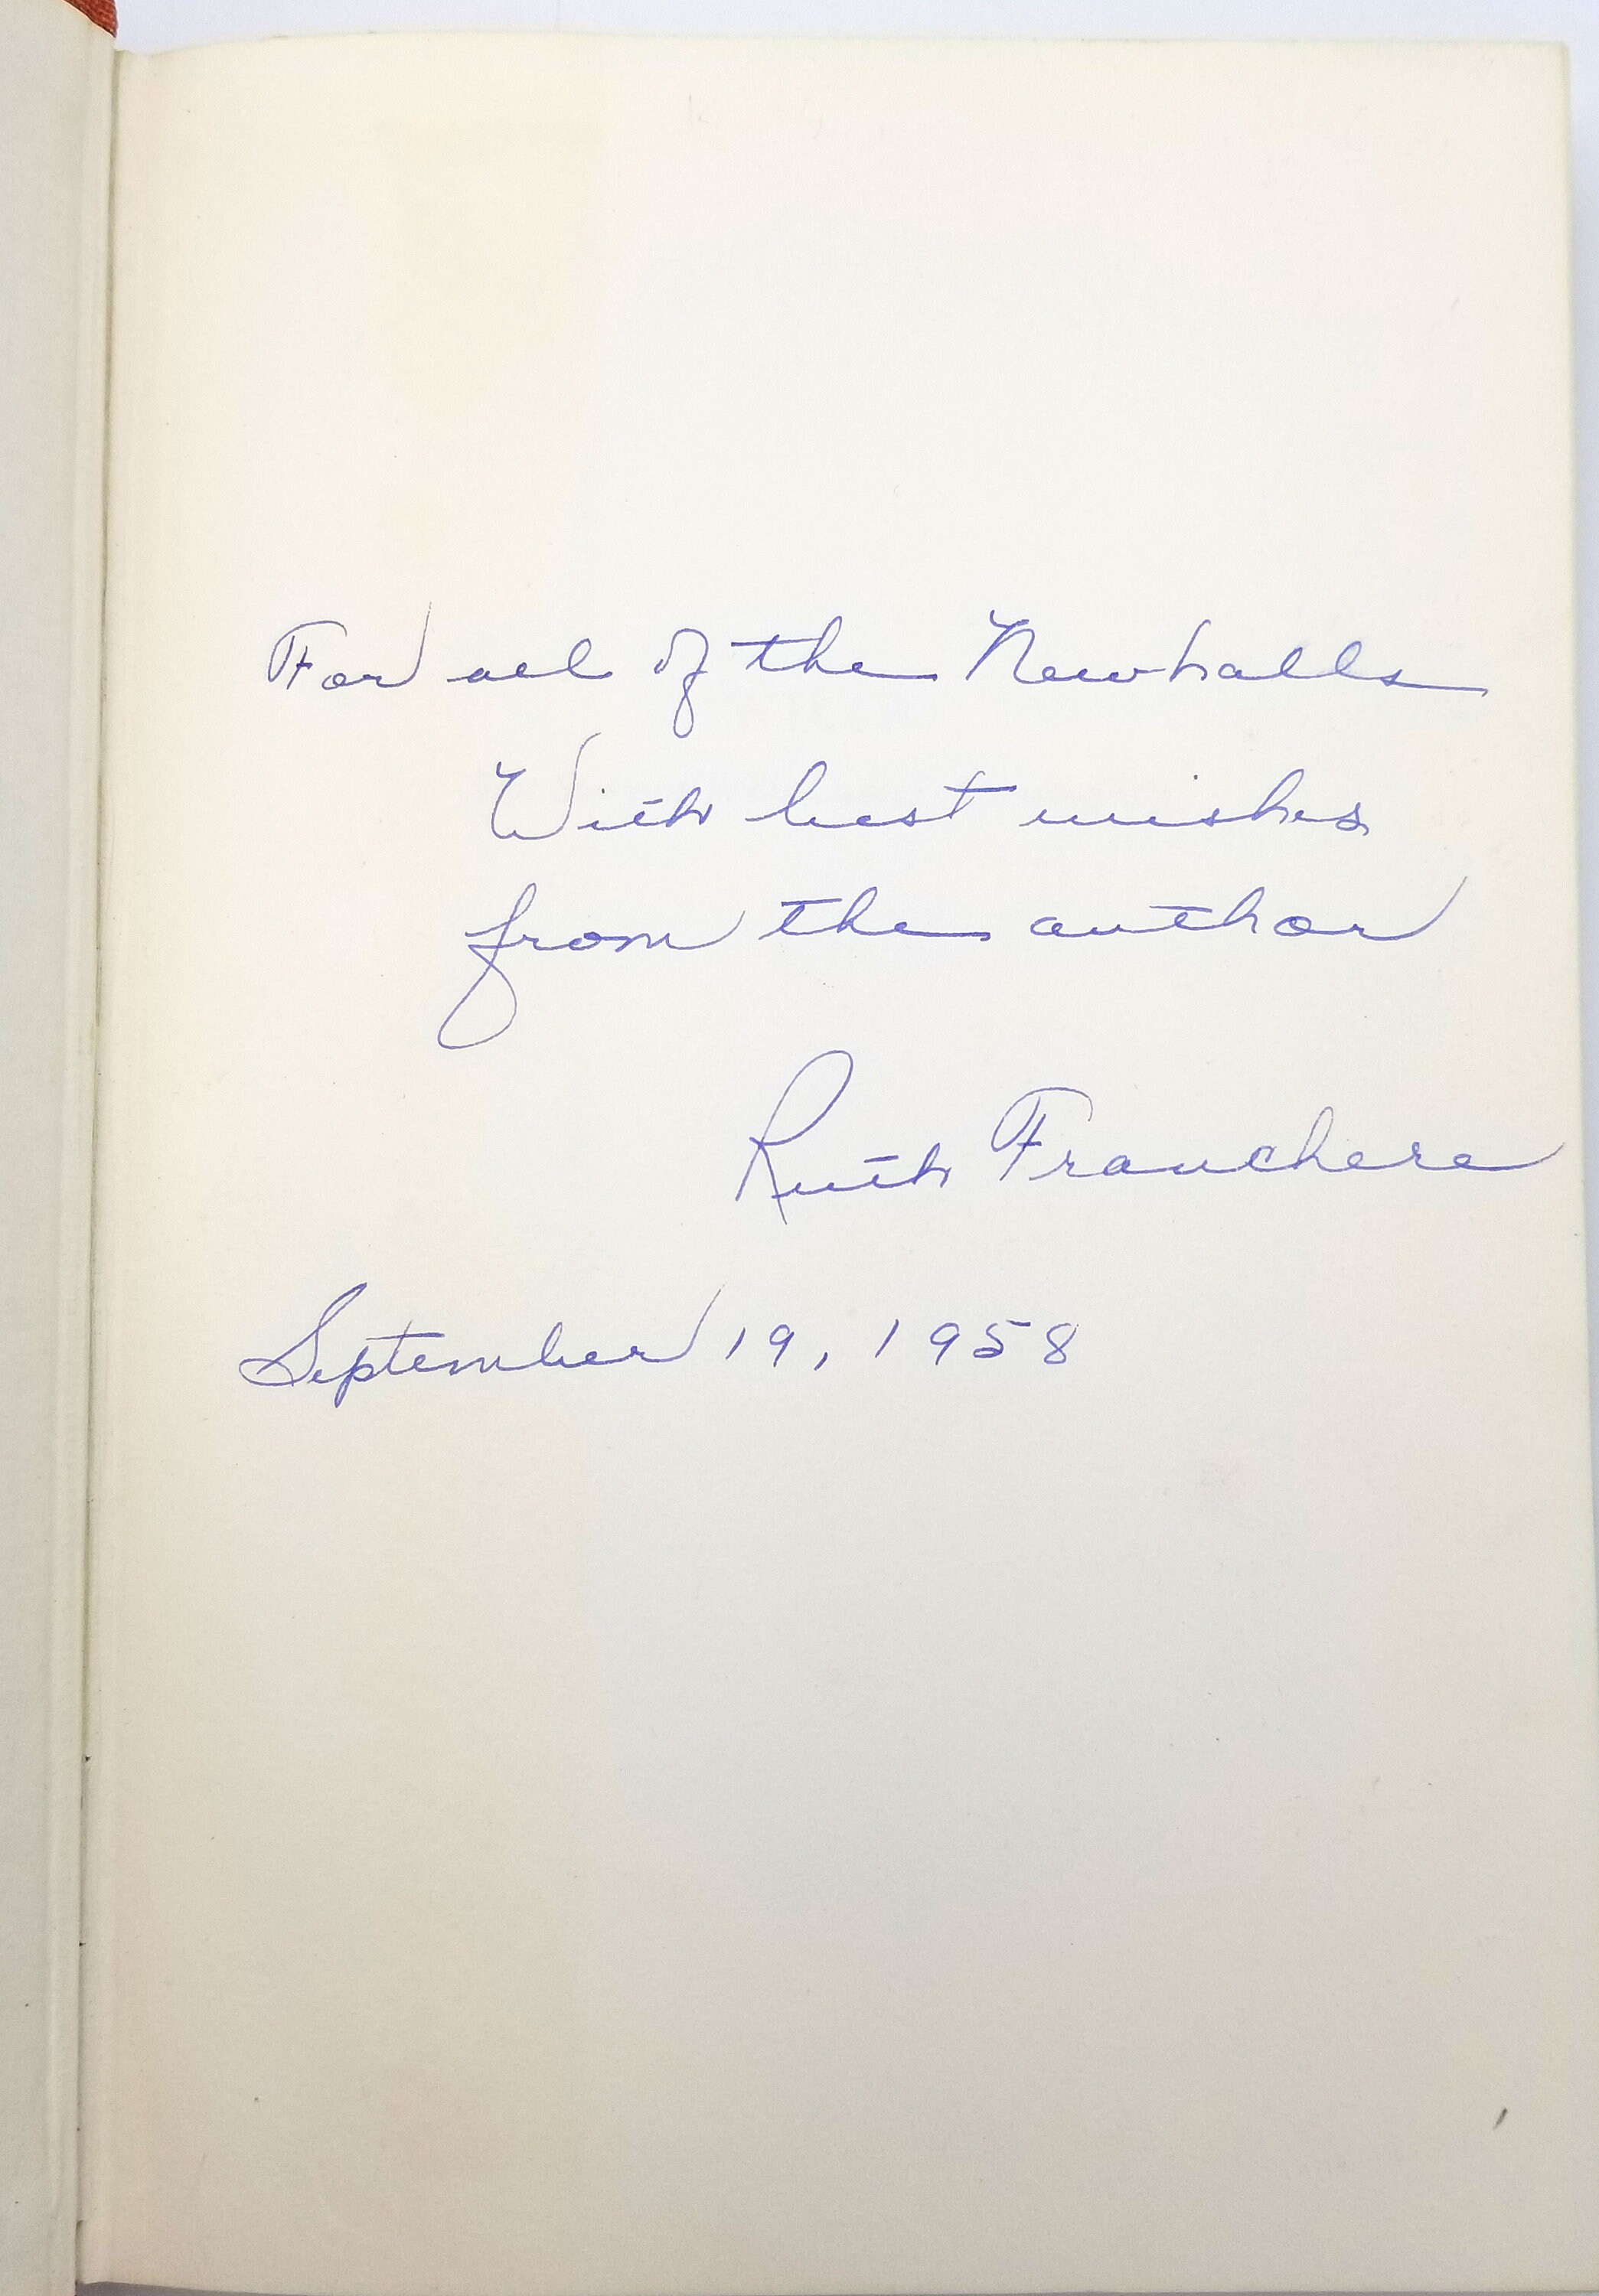 For all of the Newhalls
With best wishes
from the author
Ruth Franchere
September 19, 1958